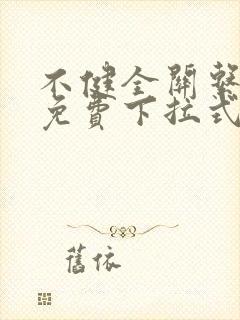 不健全關繫
免費下拉式
舊依